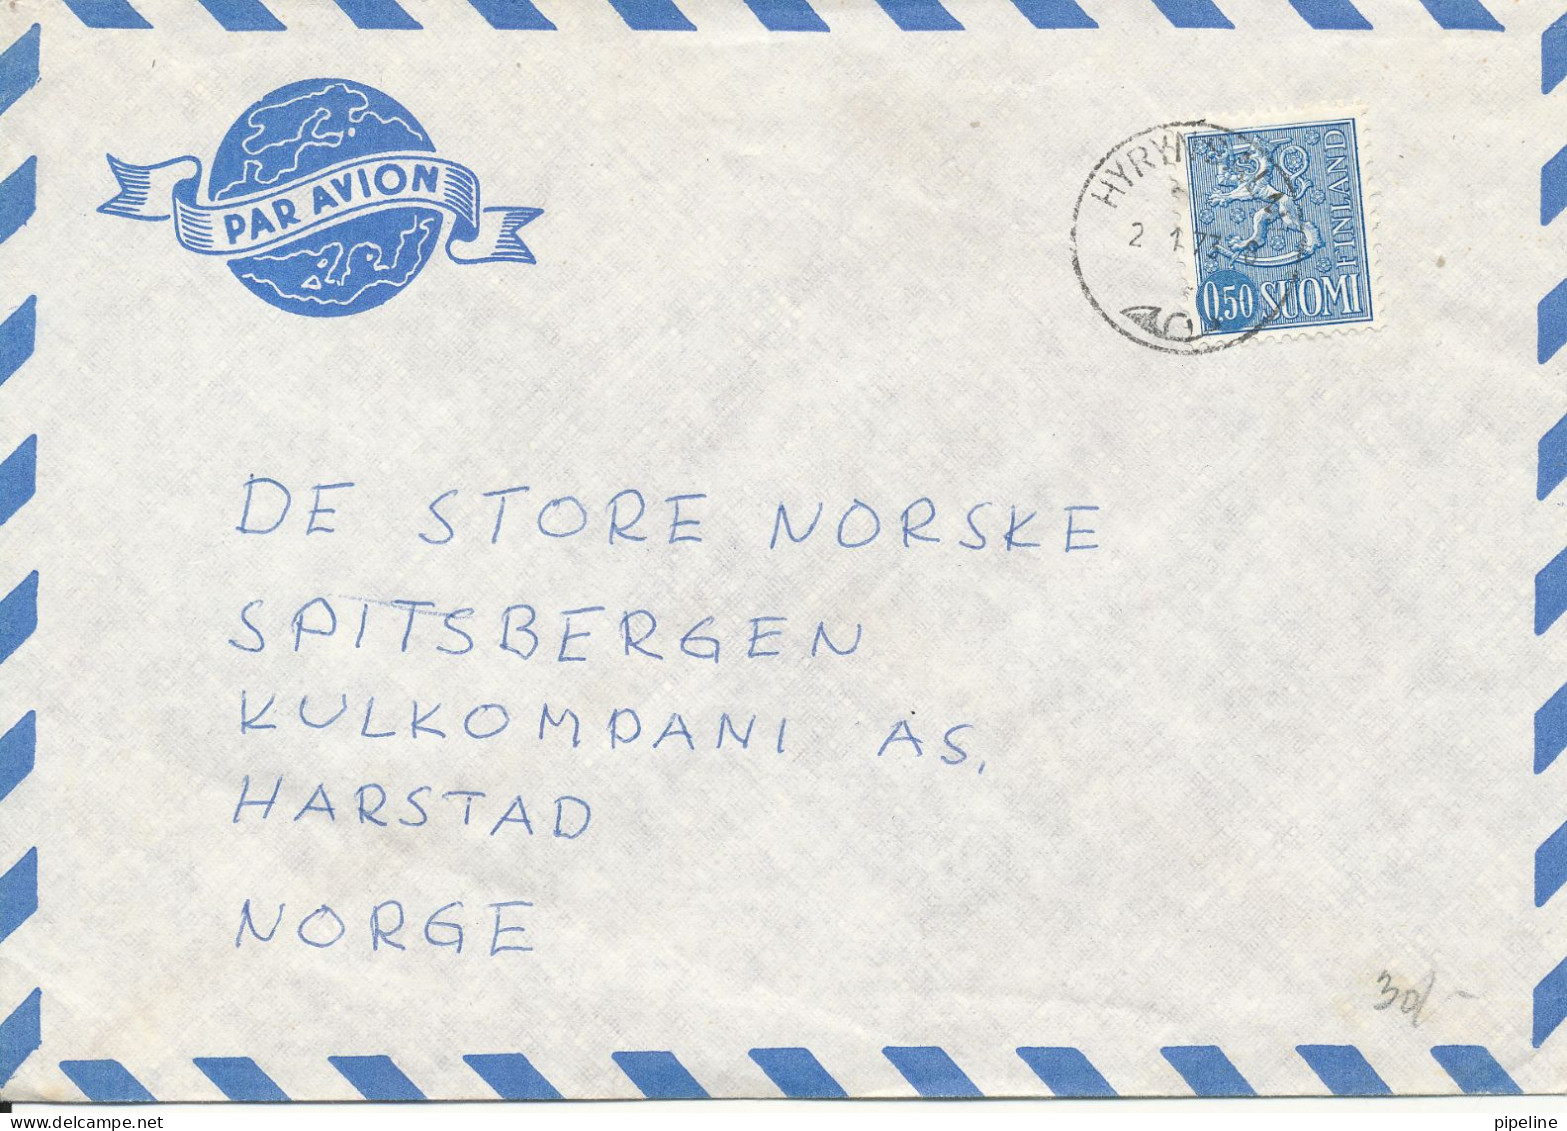 PAR AVION
FINLAND
0,50 SUOMI
2 1 73
DE STORE NORSKE
SPITSBERGEN
KULKOMPANI AS.
HARSTAD
NORGE
30,-
www.delcampe.net
pipeline